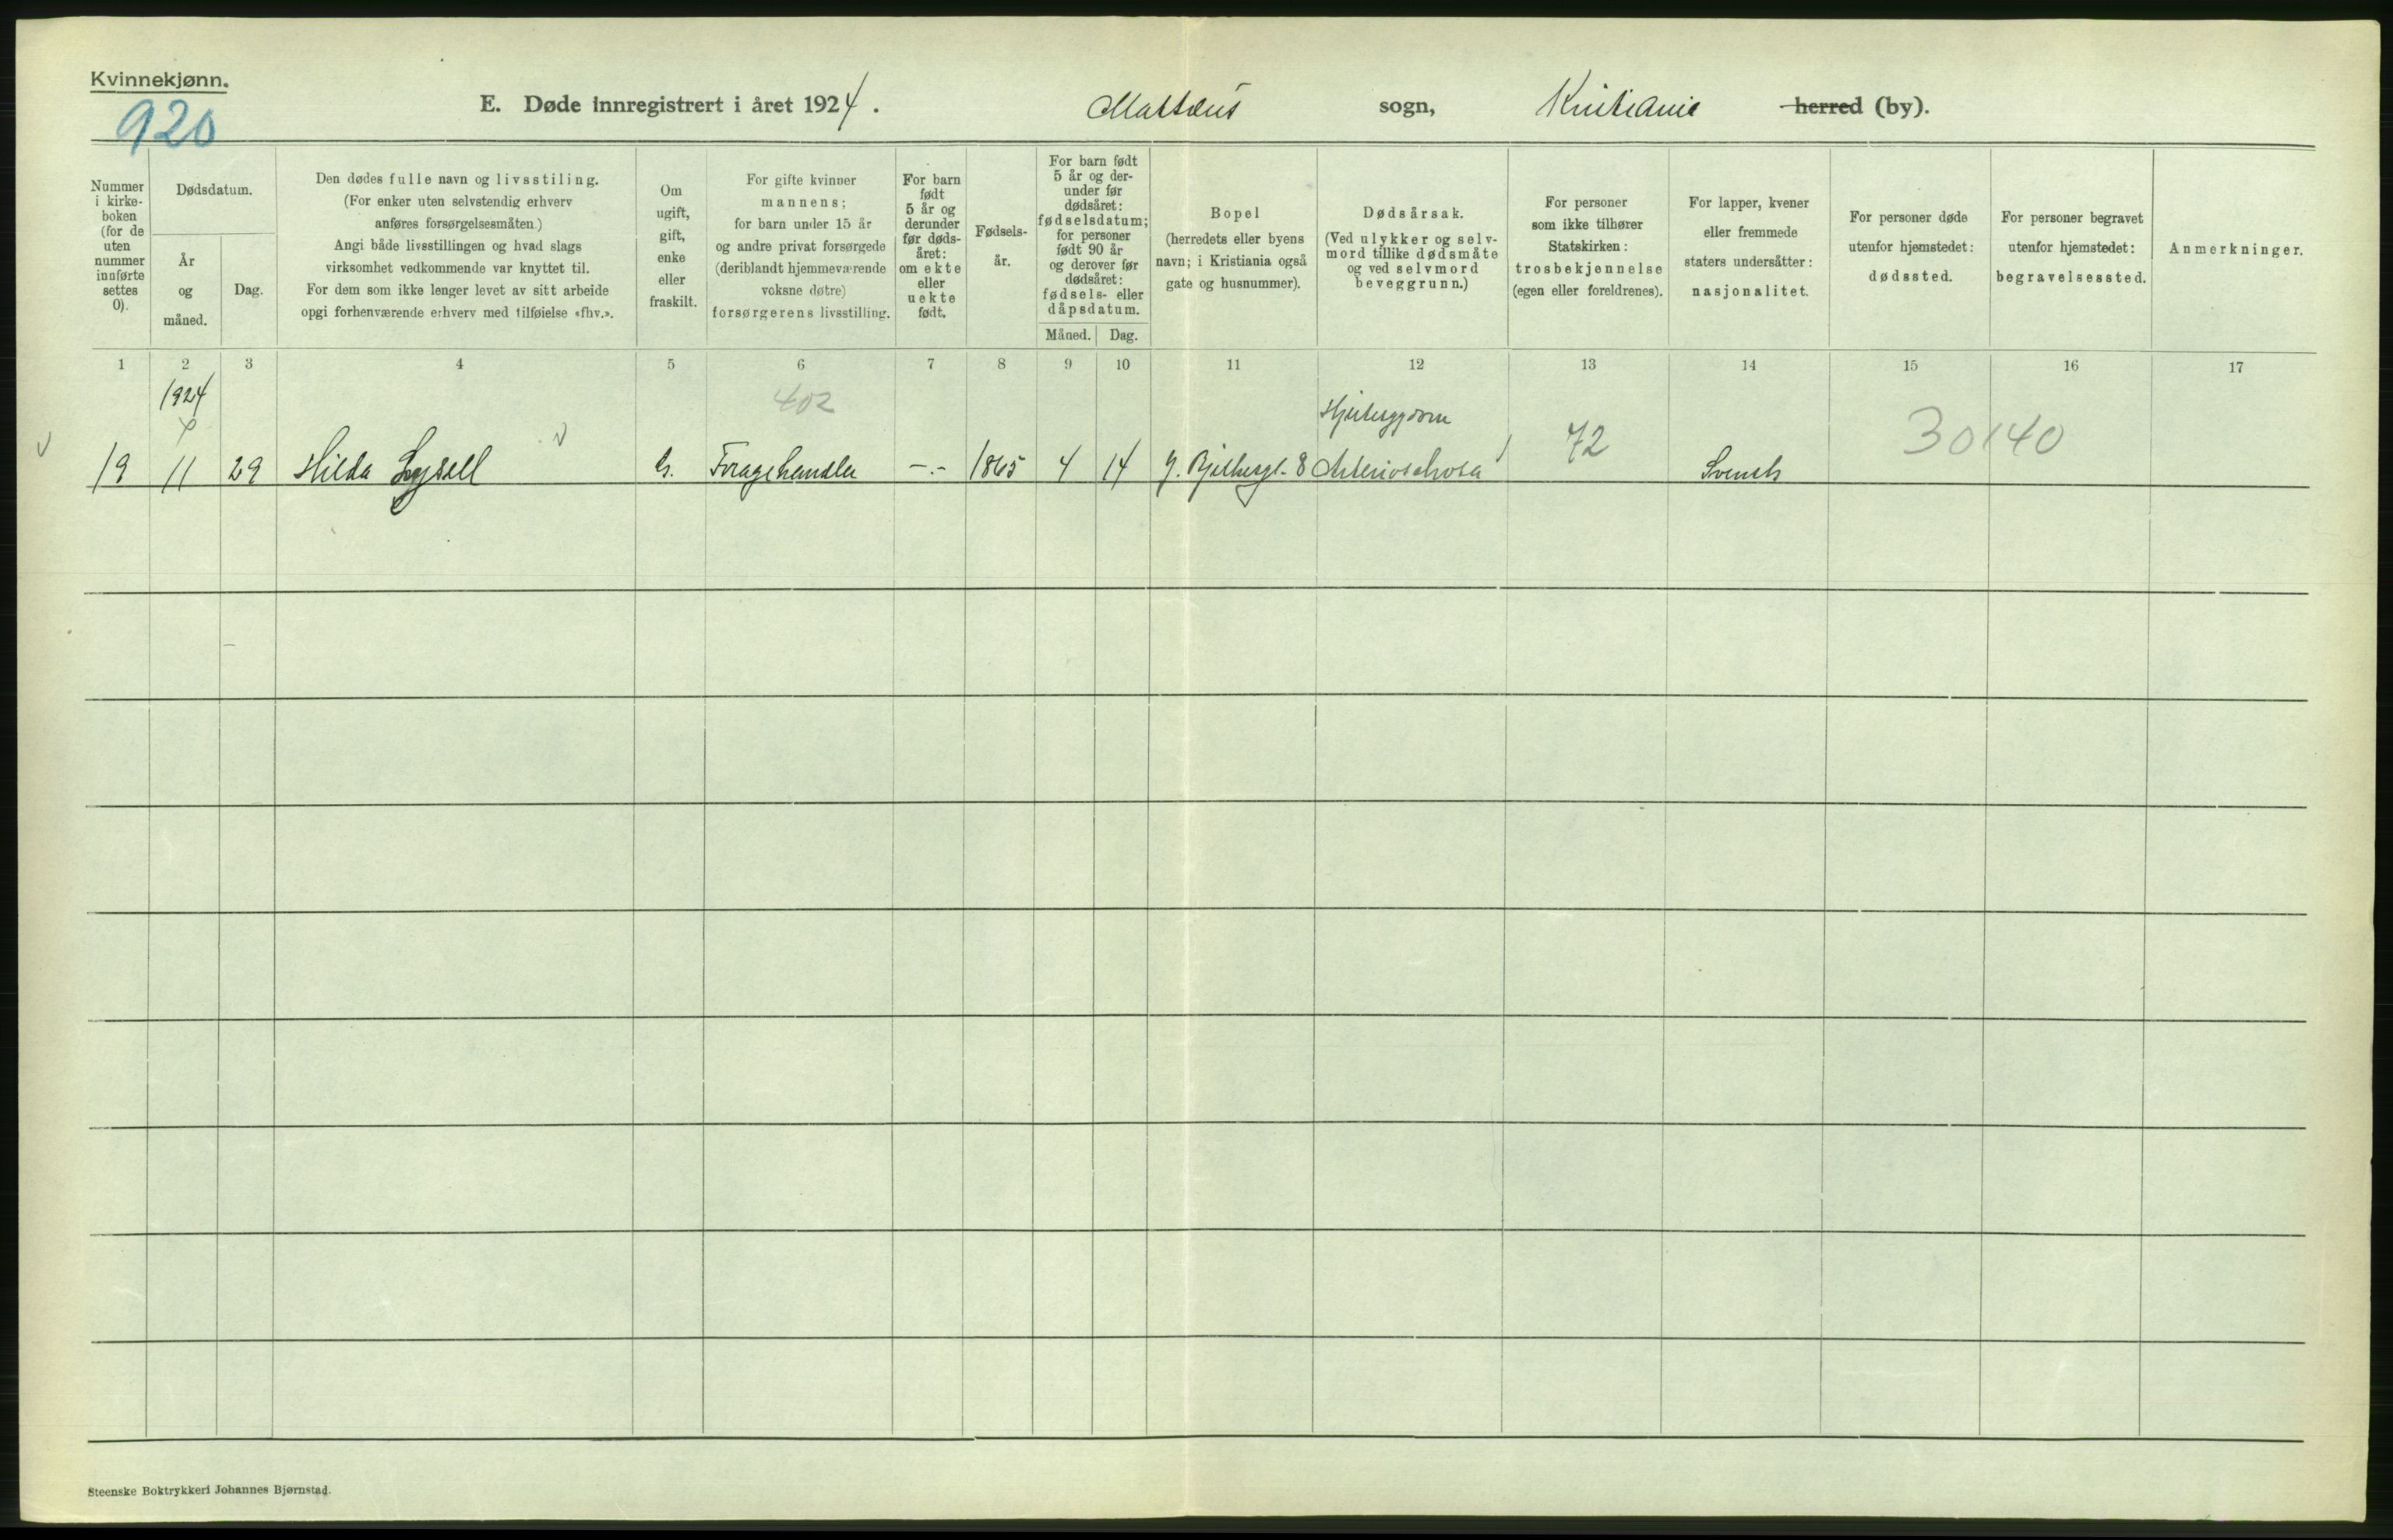 Kvinnekjønn.
920
E. Døde innregistrert i året 1924. Mattæus sogn, Kristiania herred (by).
Nummer
i kirke-
boken
(for de
uten
nummer
innførte
settes
0).
Dødsdatum.
År
og
måned.
Dag.
Den dødes fulle navn og livsstiling.
(For enker uten selvstendig erhverv
anføres forsørgelsesmåten.)
Angi både livsstillingen og hvad slags
virksomhet vedkommende var knyttet til.
For dem som ikke lenger levet av sitt arbeide
opgi forhenværende erhverv med tilføielse «fhv.».
Om
ugift,
gift,
enke
eller
fraskilt.
For gifte kvinner
mannens;
for barn under 15 år
og andre privat forsørgede
(deriblandt hjemmeværende
voksne døtre)
forsørgerens livsstilling.
For barn
født
5 år og
derunder
før døds-
året:
om ekte
eller
uekte
født.
Fødsels-
år.
For barn født
5 år og der-
under før
dødsåret:
fødselsdatum;
for personer
født 90 år
og derover før
dødsåret:
fødsels- eller
dåpsdatum.
Måned. Dag.
Bopel
(herredets eller byens
navn; i Kristiania også
gate og husnummer).
Dødsårsak.
(Ved ulykker og selv-
mord tillike dødsmåte
og ved selvmord
beveggrunn.)
For personer
som ikke tilhører
Statskirken:
trosbekjennelse
(egen eller foreldrenes).
For lapper, kvener
eller fremmede
staters undersåtter:
nasjonalitet.
For personer døde
utenfor hjemstedet:
dødssted.
For personer begravet
utenfor hjemstedet:
begravelsessted.
Anmerkninger.
1 2 3 4 5 6 7 8 9 10 11 12 13 14 15 16 17
1924 402
19 11 29 Hilda Lysell G. Foragehandler -.- 1865 4 14 8 72 Svensk 30140
Steenske Boktrykkeri Johannes Bjørnstad.